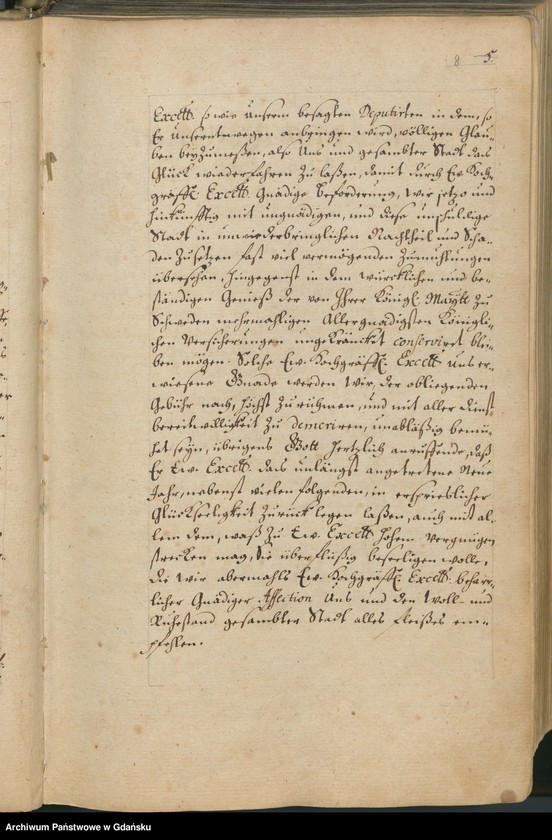 8 5.
Excell. so wir Unserm besagten Deputirten in dem, so
Er Unsertwegen anbringen wird, völligen Glau-
ben beÿzumeßen, also Uns und gesambter Stadt das
Glück wiederfahren zu laßen, damit durch Ew. Hoch-
gräffl. Excell. Gnädige Beforderung, wir jetzo und
hinkünfftig mit ungnädigen, und diese unschuldige
Stadt in unwiederbringlichen Nachtheil und Scha-
den zusetzen fast viel vermögenden Zumuthungen
übersehen, hingegenst in dem würcklichen und be-
ständigen Genieß der von Ihrer Königl. Maÿtt zu
Schweden mehrmahligen Allergnädigsten Königli-
chen Versicherungen ungekräncket conserviret blei-
ben mögen. Solche Ew. Hochgräffl. Excell. Uns er-
wiesene Gnade werden Wir, der obliegenden
Gebühr nach, höchst zurühmen, und mit aller dienst-
bereitwilligkeit zu demeriren, unabläßig bemü-
het seÿn, übrigens Gott hertzlich anruffende, daß
Er Ew. Excell. das unlängst angetretene Neue
Jahr, nebenst vielen folgenden, in ersprieslicher
Glückseeligkeit zurück legen laßen, auch mit al-
lem dem, waß zu Ew. Excell. hohem Vergnügen
strecken mag, Sie überflüßig beseeligen wolle,
Die Wir abermahls Ew. Hochgräffl. Excell. beharr-
licher Gnädiger Affection Uns und den Woll- und
Ruhestand gesambter Stadt alles fleißes em-
pfehlen.
Archiwum Państwowe w Gdańsku